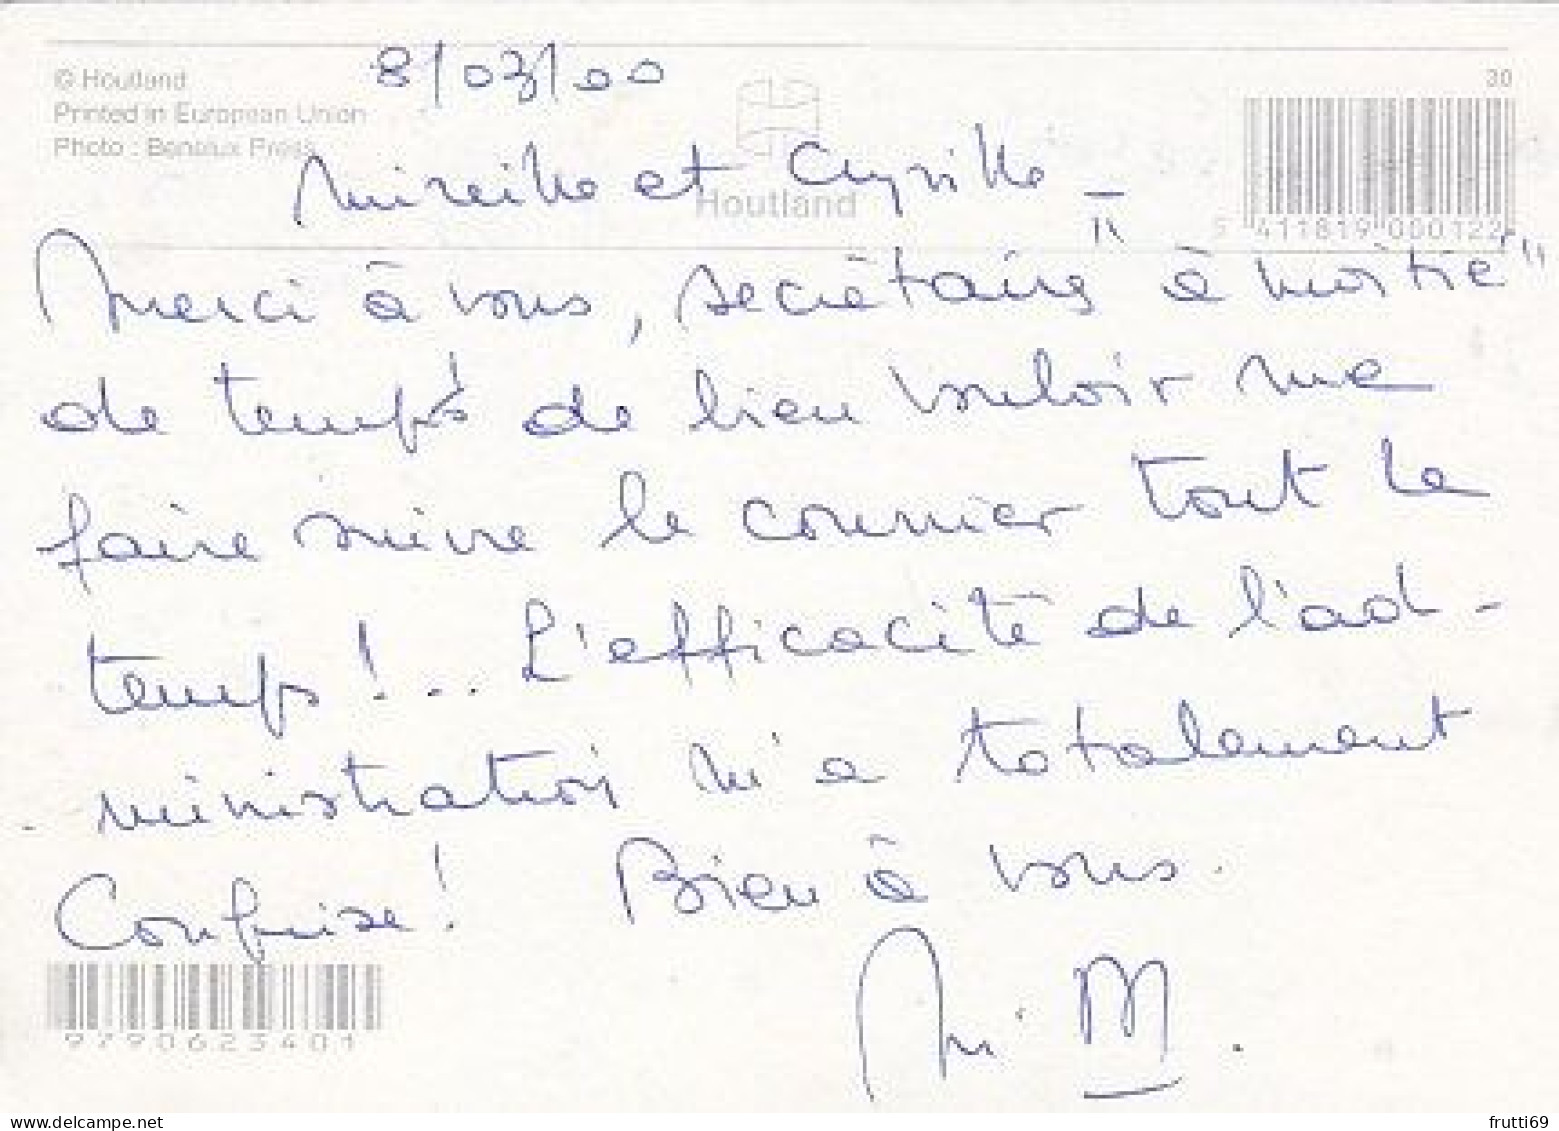 © Houtland
Printed in European Union
Photo : Benaux Press
8/03/00
30
Houtland
5 411819 000122
Mireille et Cyrille -
Merci à vous, secrétaires "à moitié"
de temps de bien vouloir me
faire suivre le courrier tout le
temps !... L'efficacité de l'ad-
ministration m'a totalement
Conquise ! Bien à vous.
M.
9790623401
frutti69